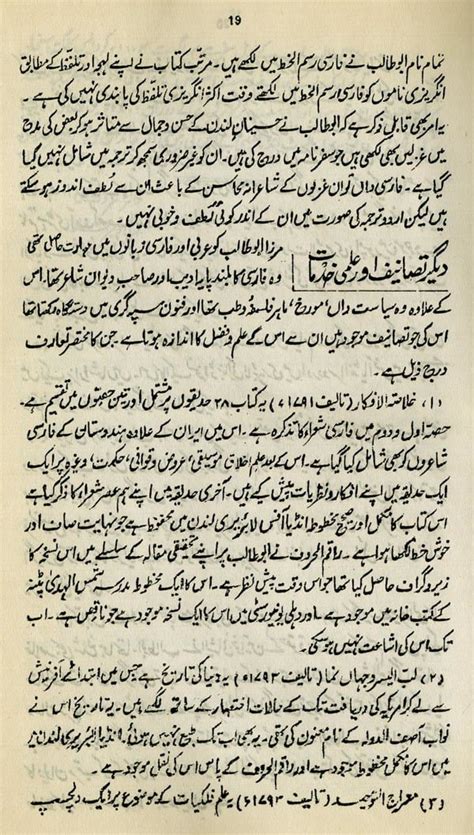 19
تمام نام ابوطالب نے فارسی رسم الخط میں لکھے ہیں۔ مرتب کتاب نے اپنے لہجہ اور تلفظ کے مطابق
انگریزی ناموں کو فارسی رسم الخط میں لکھتے وقت اکثر انگریزی تلفظ کی پابندی نہیں کی ہے۔
یہ امر بھی قابلِ ذکر ہے کہ ابوطالب نے حسینانِ لندن کے حسن و جمال سے متاثر ہو کر بعض کی مدح
میں غزلیں بھی لکھی ہیں جو سفرنامہ میں درج کی ہیں۔ ان کو غیر ضروری سمجھ کر ترجمہ میں شامل نہیں کیا
گیا ہے۔ فارسی داں تو ان غزلوں کے شاعرانہ محاسن کے باعث ان سے لطف اندوز ہو سکتے
ہیں لیکن اردو ترجمہ کی صورت میں ان کے اندر کوئی لطف و خوبی نہیں۔
دیگر تصانیف اور علمی خدمات
مرزا ابوطالب کو عربی اور فارسی زبانوں میں مہارت حاصل تھی
وہ فارسی کا بلند پایہ ادیب اور صاحب دیوان شاعر تھا۔ اس
کے علاوہ وہ سیاست داں، مورخ، ماہر فلسفہ و طب تھا اور فنون سپہ گری میں دستگاہ رکھتا تھا
اس کی جو تصانیف موجود ہیں ان سے اس کے علم و فضل کا اندازہ ہوتا ہے جن کا مختصر تعارف
درج ذیل ہے۔
(۱) خلاصۃ الافکار (تالیف ۱۷۹۱ء) یہ کتاب ۲۸ حدیقوں پر مشتمل اور تین حصوں میں تقسیم ہے۔
حصہ اول و دوم میں فارسی شعراء کا تذکرہ ہے۔ اس میں ایران کے علاوہ ہندوستان کے فارسی
شاعروں کو بھی شامل کیا گیا ہے۔ اس کے بعد علم اخلاق، موسیقی، عروض و قوافی، حکمت، وغیرہ پر ایک
ایک حدیقہ میں اپنے افکار و نظریات پیش کیے ہیں۔ آخری حدیقہ میں اپنے ہم عصر شعراء کا ذکر کیا ہے
اس کتاب کا مکمل اور صحیح مخطوطہ انڈیا آفس لائبریری لندن میں محفوظ ہے جو نہایت صاف اور
خوش خط لکھا ہوا ہے۔ راقم الحروف نے ابوطالب پر اپنے تحقیقی مقالہ کے سلسلے میں اس نسخہ کا
زیروگراف حاصل کیا تھا جو اس وقت پیش نظر ہے۔ اس کا ایک مخطوطہ مدرسہ شمس الہدیٰ پٹنہ
کے کتب خانہ میں موجود ہے۔ اور دہلی یونیورسٹی میں بھی اس کا ایک نسخہ موجود ہے جو ناقص ہے۔ اب
تک اس کی اشاعت نہیں ہو سکی۔
(۲) لب السیر و جہاں نما (تالیف ۱۷۹۳ء) یہ دنیا کی تاریخ ہے جس میں ابتدائے آفرینش
سے لے کر امریکہ کی دریافت تک کے حالات اختصار کے ساتھ لکھے ہیں۔ یہ تاریخ اس نے
نواب آصف الدولہ کے نام معنون کی تھی۔ یہ بھی اب تک طبع نہیں ہوئی۔ انڈیا آفس لائبریری لندن میں
اس کا مکمل مخطوطہ موجود ہے اور راقم الحروف کے پاس اس کی نقل موجود ہے۔
(۳) معراج التوحید (تالیف ۱۷۹۳ء) یہ علم فلکیات کے موضوع پر ایک دلچسپ